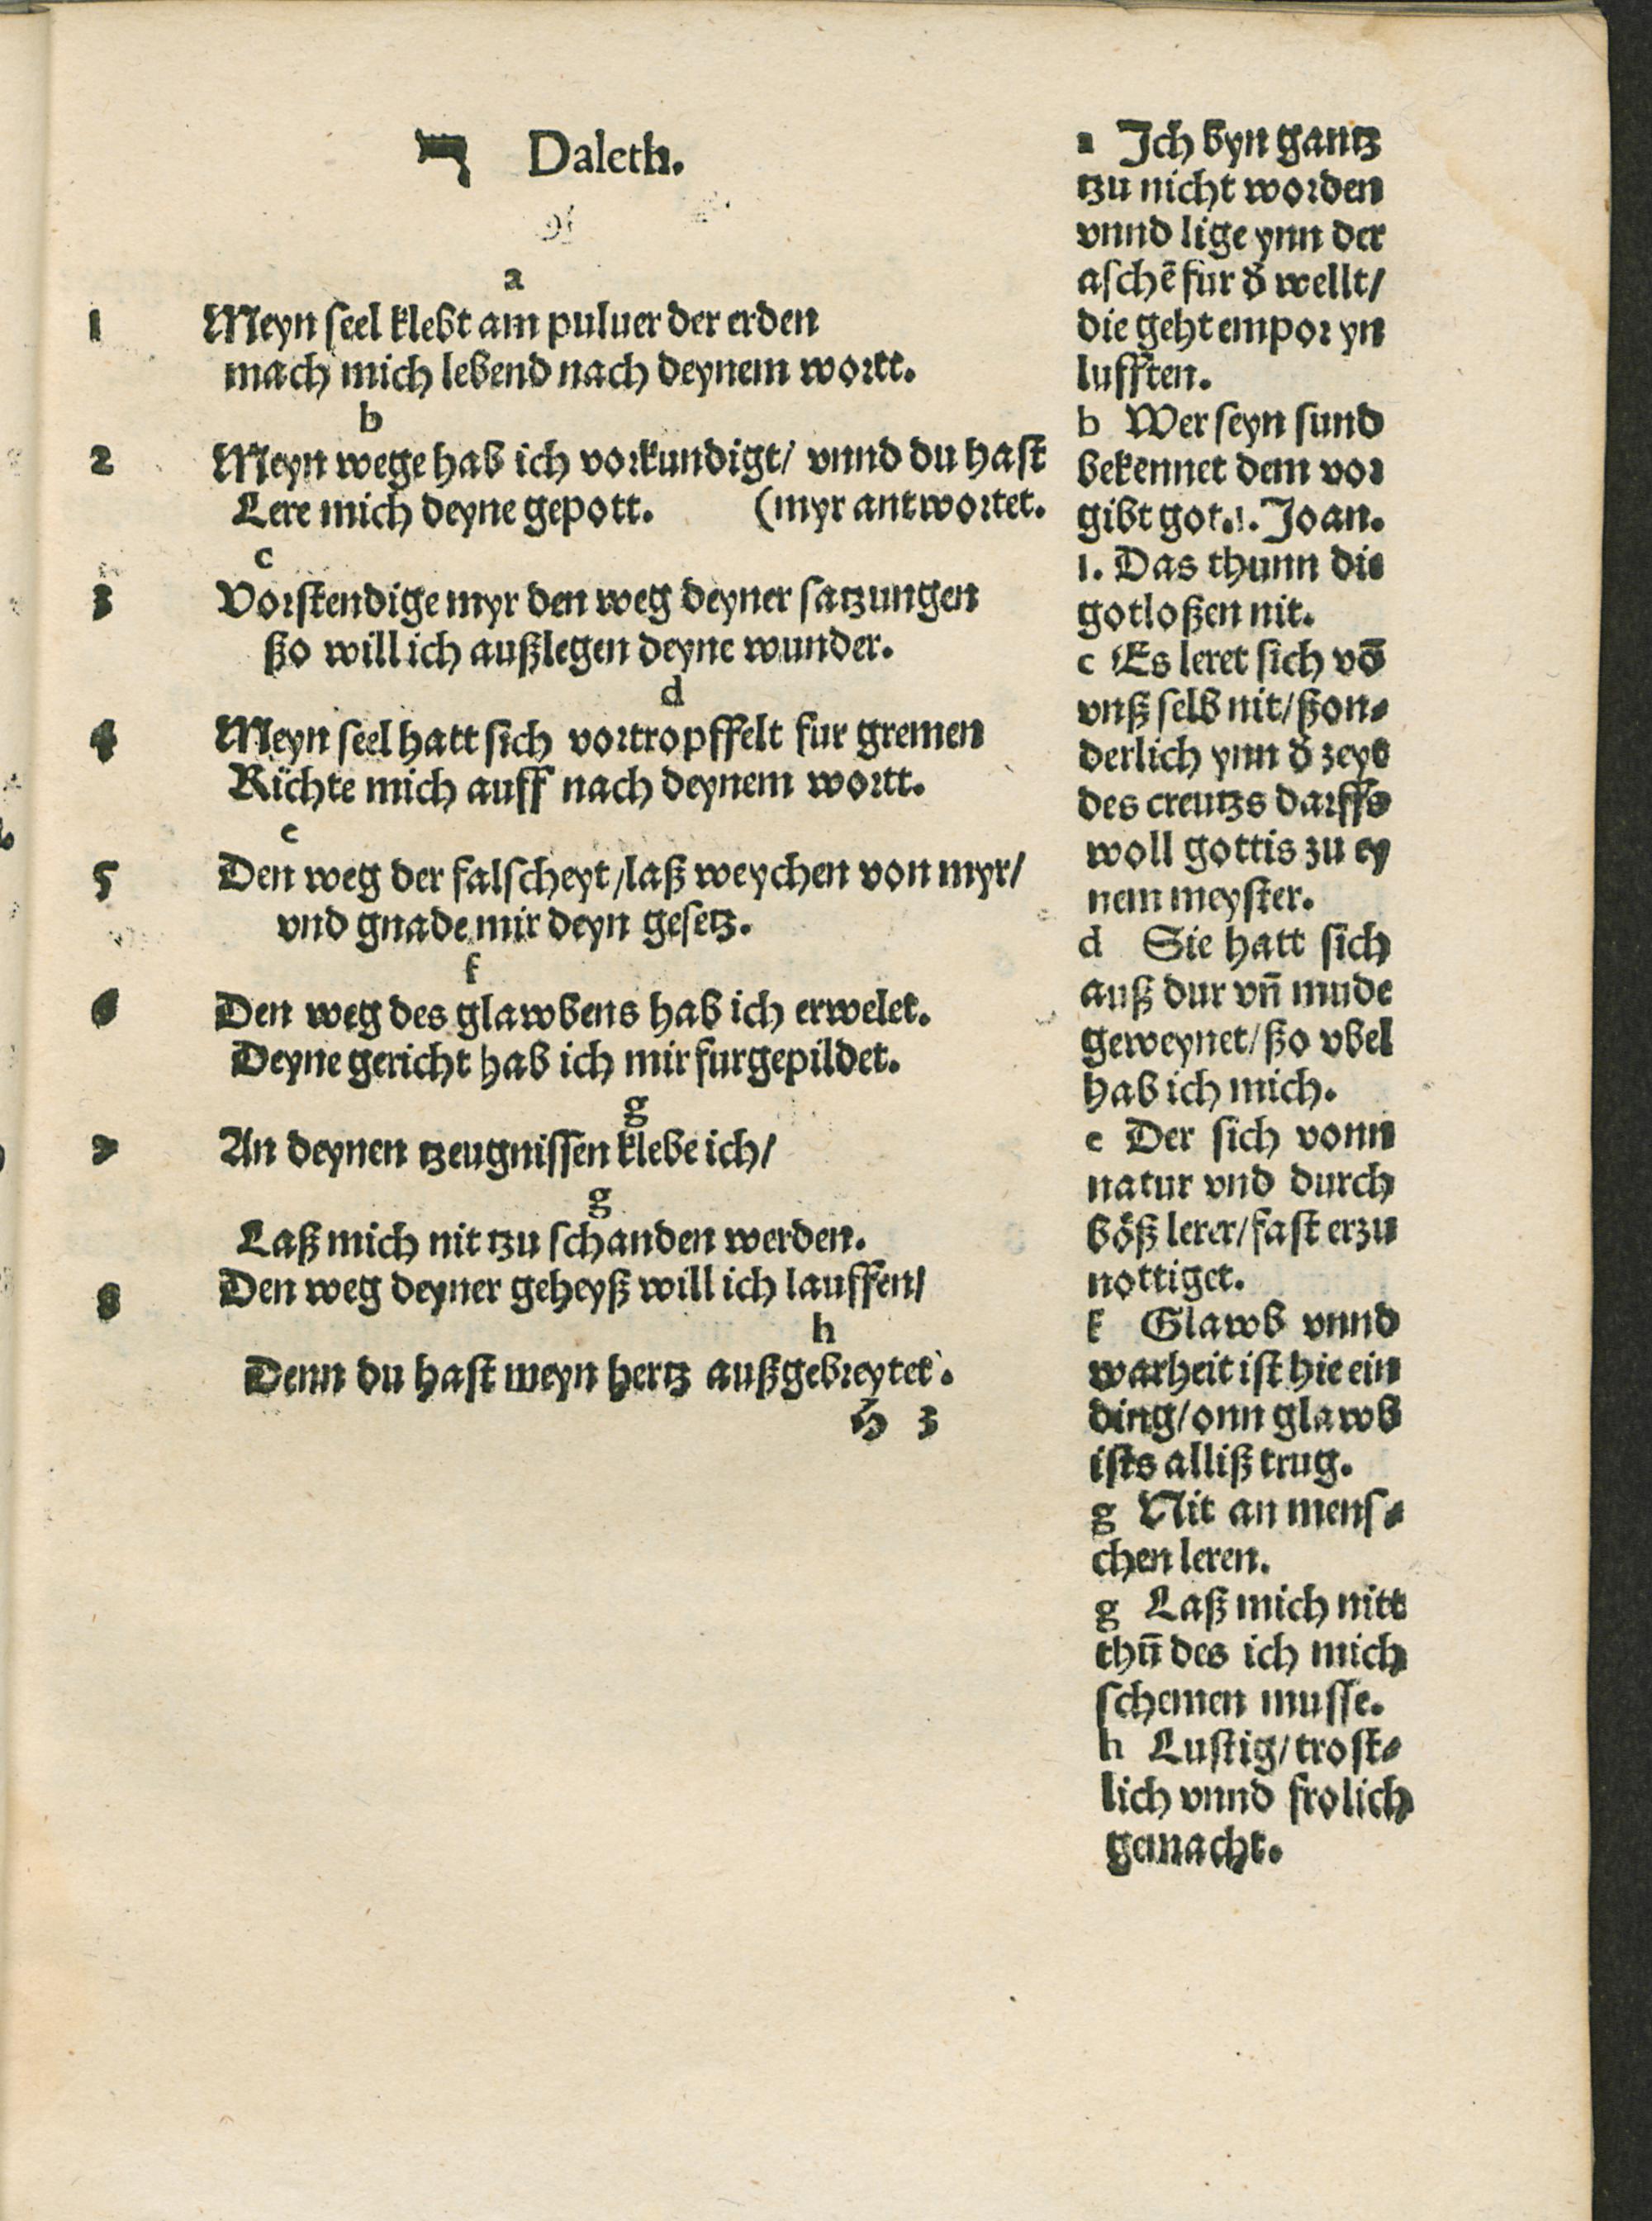 ד Daleth.
a
1 Meyn seel klebt am puluer der erden
mach mich lebend nach deynem wortt.
b
2 Meyn wege hab ich vorkundigt/ vnnd du hast
Lere mich deyne gepott. (myr antwortet.
c
3 Vorstendige myr den weg deyner satzungen
ßo will ich außlegen deyne wunder.
d
4 Meyn seel hatt sich vortropffelt fur gremen
Richte mich auff nach deynem wortt.
e
5 Den weg der falscheyt/laß weychen von myr/
vnd gnade mir deyn gesetz.
f
6 Den weg des glawbens hab ich erwelet.
Deyne gericht hab ich mir furgepildet.
g
7 An deynen tzeugnissen klebe ich/
g
Laß mich nit tzu schanden werden.
8 Den weg deyner geheyß will ich lauffen/
h
Denn du hast meyn hertz außgebreytet.
H 3
a Ich byn gantz
tzu nicht worden
vnnd lige ynn der
aschē fur d̕ wellt/
die geht empor yn
lufften.
b Wer seyn sund
bekennet dem vor
gibt got.1. Joan.
1. Das thunn die
gotloßen nit.
c Es leret sich vō
vnß selb nit/ßon⸗
derlich ynn d̕ zeyt
des creutzs darffs
woll gottis zu ey
nem meyster.
d Sie hatt sich
auß dur vn̄ mude
geweynet/ßo vbel
hab ich mich.
e Der sich vonn
natur vnd durch
böß lerer/fast erzu
nottiget.
f Glawb vnnd
warheit ist hie ein
ding/onn glawb
ists alliß trug.
g Nit an mens⸗
chen leren.
g Laß mich nitt
thūn des ich mich
schemen musse.
h Lustig/trost⸗
lich vnnd frolich
gemacht.